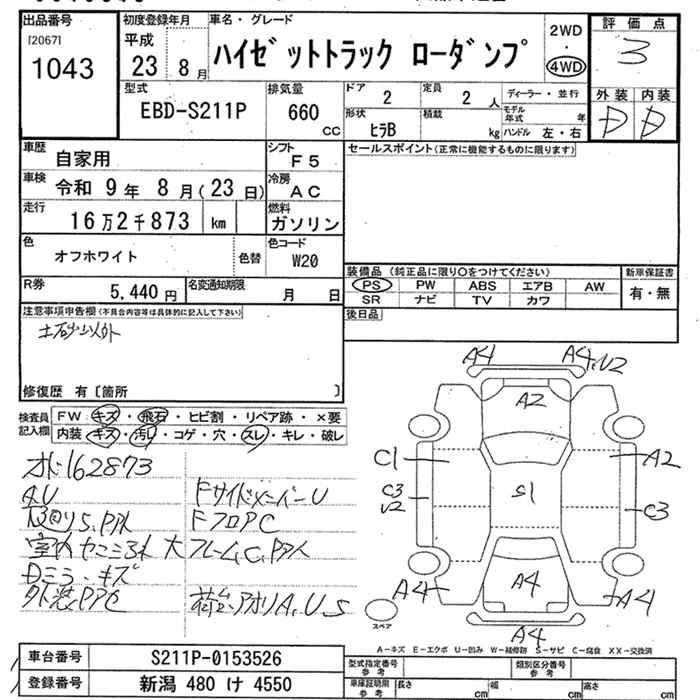 出品番号
[2067]
1043
初度登録年月
平成
23 8 月
車名・グレード
ハイゼットトラック ローダンプ
2WD
・
4WD
評価点
3
外装 内装
D D
型式
EBD-S211P
排気量
660
CC
ドア
2
定員
2 人
ディーラー・並行
形状
ヒラB
積載
kg
モデル年式 年
ハンドル 左・右
車歴
自家用
シフト
F5
車検
令和 9年 8月(23日)
冷房
AC
走行
16万2千873 km
燃料
ガソリン
色
オフホワイト
色替
色コード
W20
R券
5,440円
名変通知期限
月 日
セールスポイント(正常に機能するものに限ります)
装備品 (純正品に限り○をつけてください)
新車保証書
PS PW ABS エアB AW
SR ナビ TV カワ
有・無
後日品
注意事項申告欄(不具合内容等は具体的に記入して下さい)
土砂以外
修復歴 有〔箇所 〕
検査員記入欄
FW キズ・飛石・ヒビ割・リペア跡・×要
内装 キズ・汚レ・コゲ・穴・スレ・キレ・破レ
162873
A.U
FサイドメンバーU
FフロアC
大
キズ
A.U.S
A4
A4.U2
A2
C1
A2
C3
U2
S1
C3
A4
A4
A4
A4
スペア
A-キズ E-エクボ U-凹み W-補修跡 S-サビ C-腐食 XX-交換済
車台番号
S211P-0153526
登録番号
新潟 480 け 4550
型式指定番号
参考
類別区分番号
参考
車庫証明用
参考
長さ cm
幅 cm
高さ cm